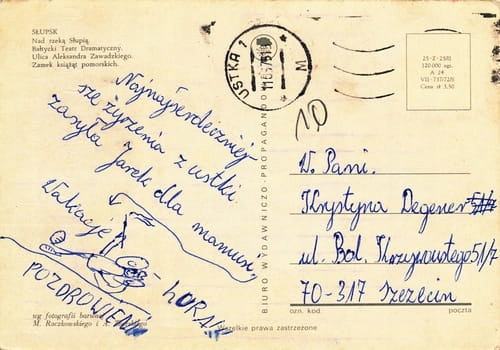 SŁUPSK
Nad rzeką Słupią.
Bałtycki Teatr Dramatyczny.
Ulica Aleksandra Zawadzkiego.
Zamek książąt pomorskich.
USTKA 1
M
25-Z-2581
120 000 egz.
A 24
VII-737/72/S
Cena zł 3,50
10
Najnajserdeczniej
sze życzenia z ustki
zasyła Jarek dla mamusi
Wakacje
HURA!!
POZDROWIENIA
W. Pani.
Krystyna Degener
ul. Bol. Krzywoustego 51/7
70-317 Szczecin
ozn. kod
poczta
BIURO WYDAWNICZO-PROPAGANDOWE
wg fotografii barwnej
M. Raczkowskiego i A.
Wszelkie prawa zastrzeżone